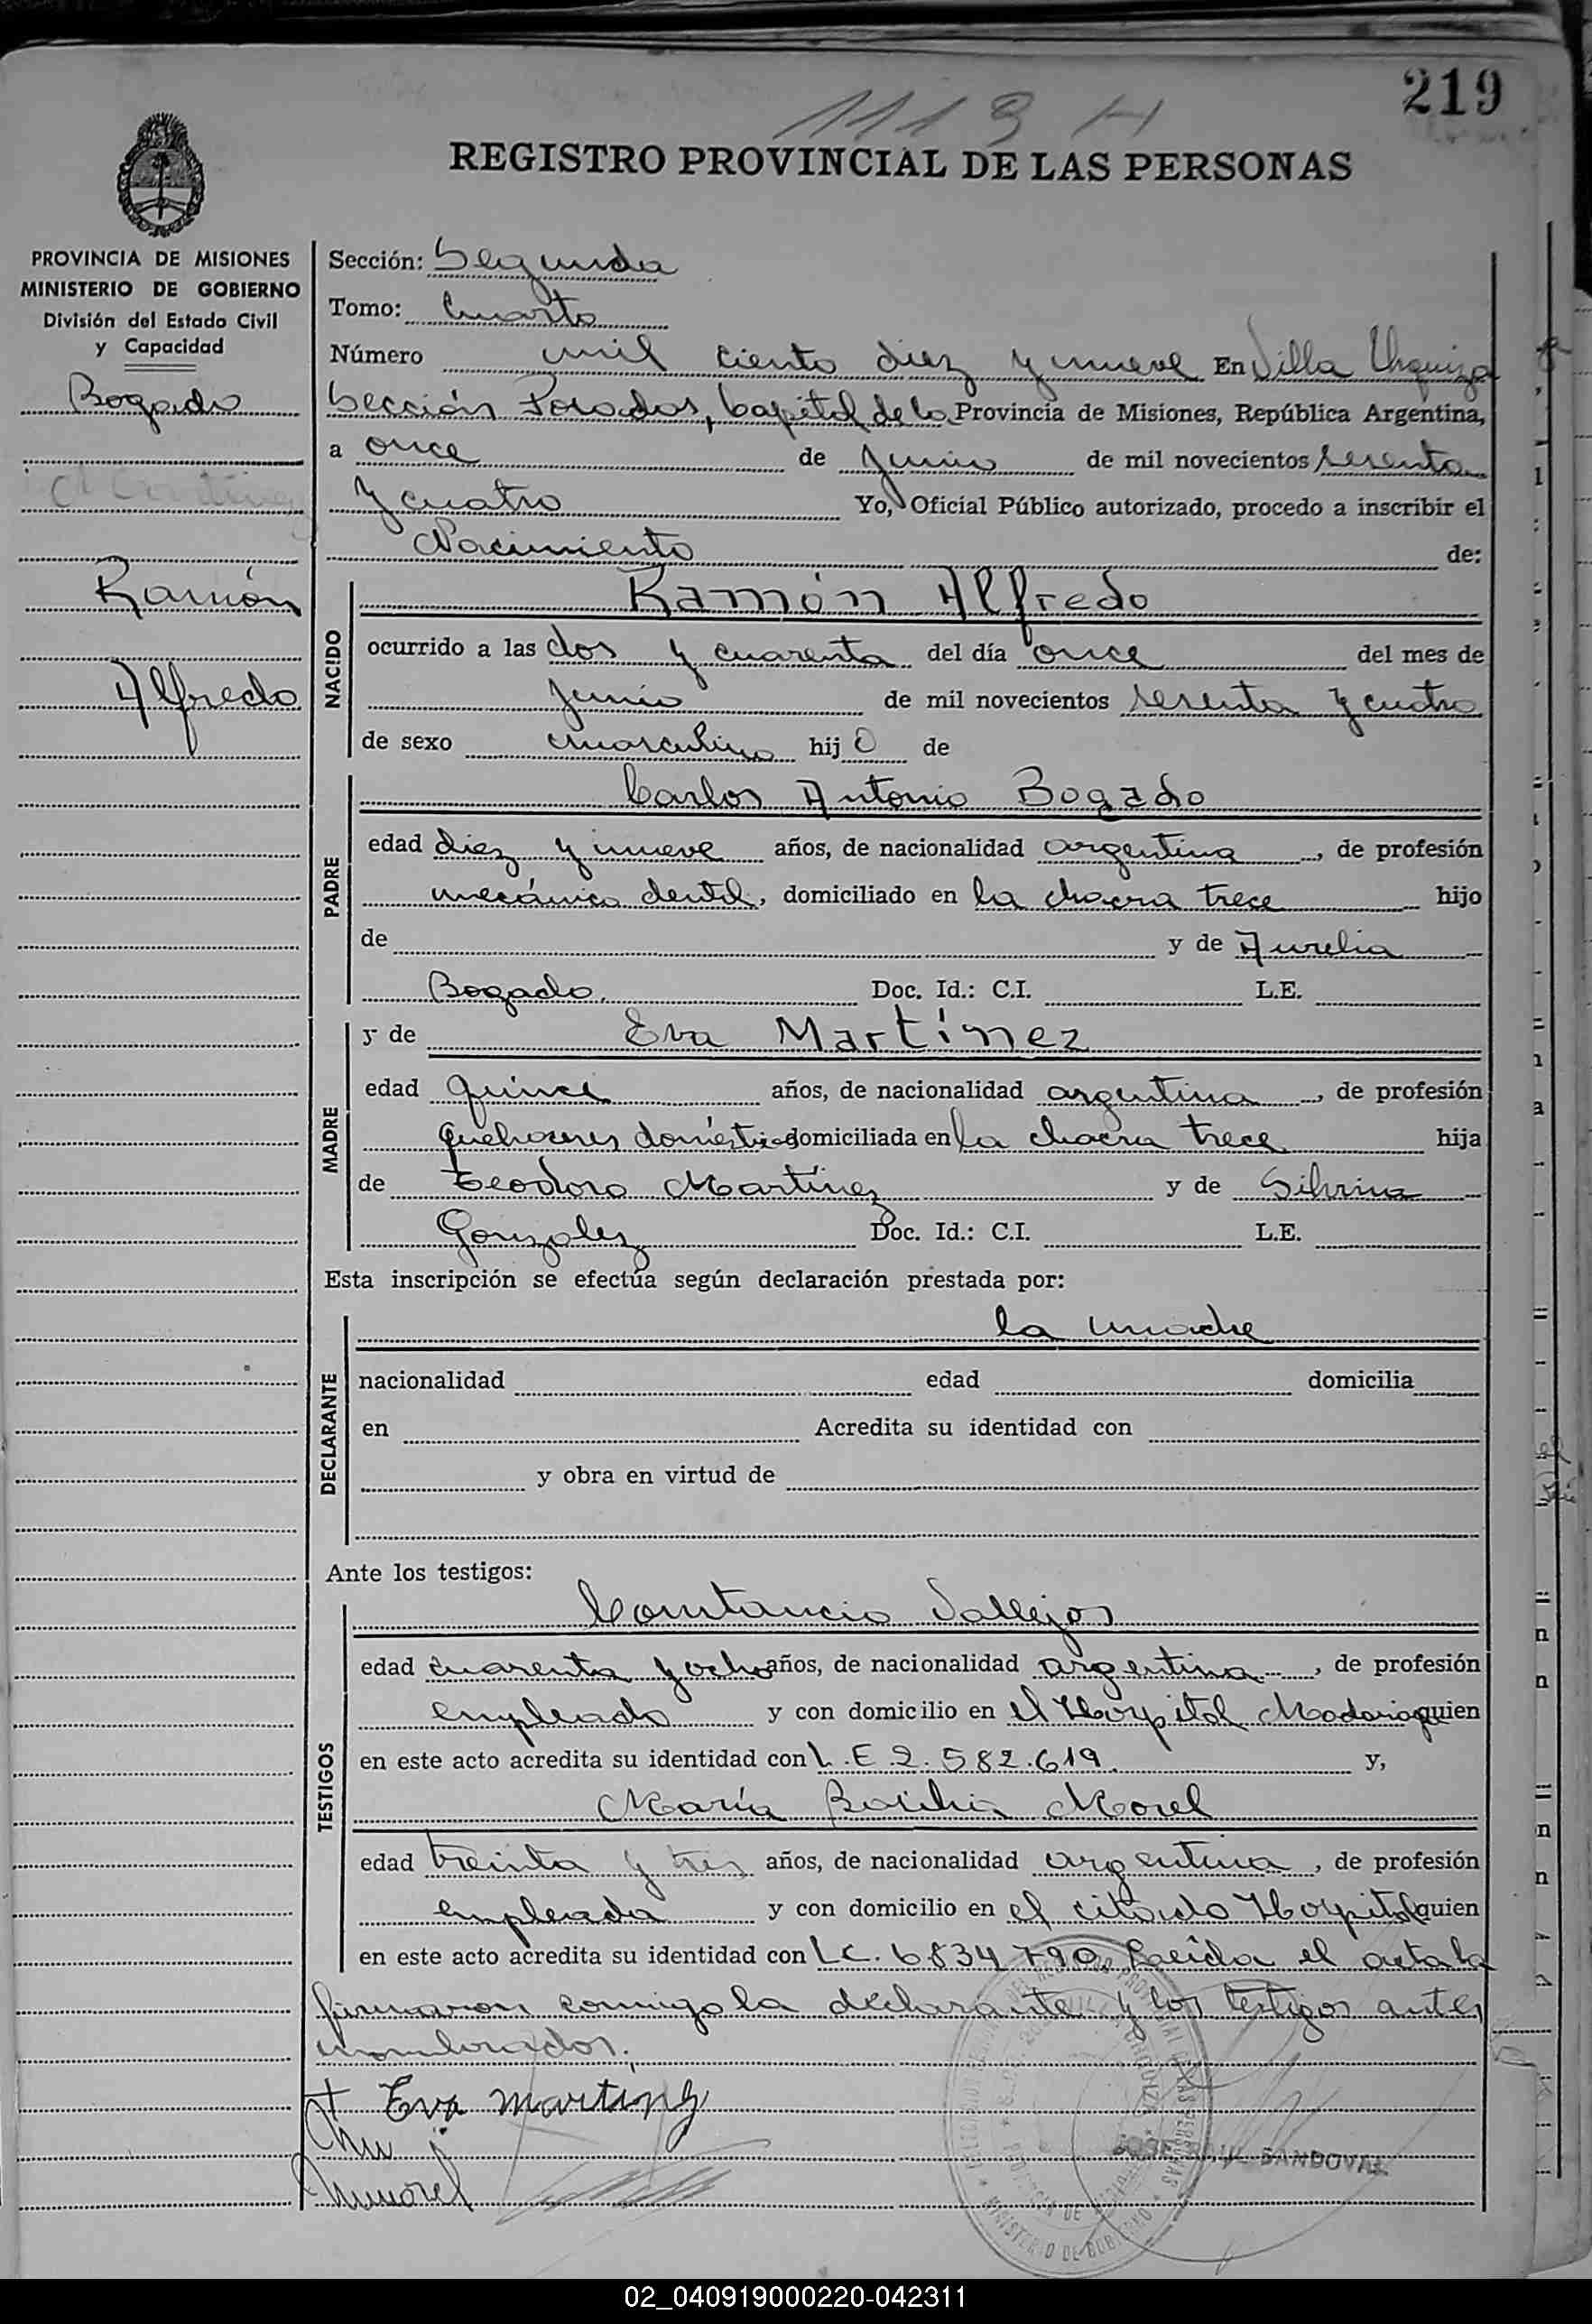 219
1119 H
REGISTRO PROVINCIAL DE LAS PERSONAS
PROVINCIA DE MISIONES
MINISTERIO DE GOBIERNO
División del Estado Civil
y Capacidad
Bogado
Ramón
Alfredo
Sección: Segunda
Tomo: Cuarto
Número mil ciento diez y nueve En Villa Urquiza
Sección Posadas, Capital de la Provincia de Misiones, República Argentina,
a once de Junio de mil novecientos sesenta
y cuatro Yo, Oficial Público autorizado, procedo a inscribir el
Nacimiento de:
NACIDO
Ramón Alfredo
ocurrido a las dos y cuarenta del día once del mes de
Junio de mil novecientos sesenta y cuatro
de sexo masculino hijo de
PADRE
Carlos Antonio Bogado
edad diez y nueve años, de nacionalidad argentina, de profesión
mecánico dental, domiciliado en la chacra trece hijo
de y de Aurelia
Bogado. Doc. Id.: C.I. L.E.
MADRE
y de Eva Martínez
edad quince años, de nacionalidad argentina, de profesión
quehaceres domésticos domiciliada en la chacra trece hija
de Teodoro Martínez y de Silvina
Gonzalez Doc. Id.: C.I. L.E.
Esta inscripción se efectúa según declaración prestada por:
DECLARANTE
la madre
nacionalidad edad domicilia
en Acredita su identidad con
y obra en virtud de
Ante los testigos:
TESTIGOS
Constancio Vallejos
edad cuarenta y ocho años, de nacionalidad argentina, de profesión
empleado y con domicilio en el Hospital Madariaga quien
en este acto acredita su identidad con L.E 2.582.619. y,
María Morel
edad treinta y tres años, de nacionalidad argentina, de profesión
empleada y con domicilio en el citado Hospital quien
en este acto acredita su identidad con L.C. 6834790. Leída el acta la
firmaron conmigo la declarante y los testigos antes
nombrados.
Eva Martinez
SANDOVAL
MINISTERIO DE GOBIERNO
02_040919000220-042311